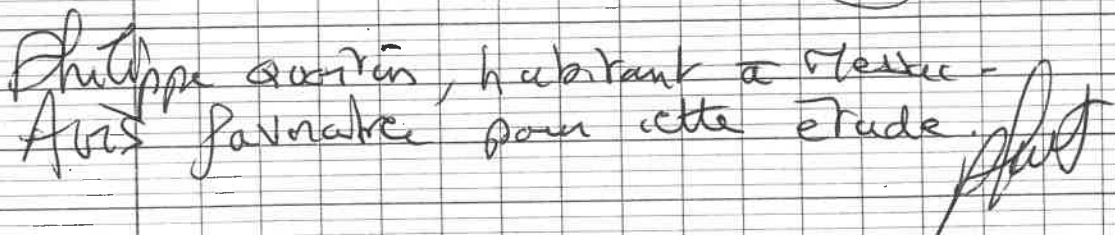 Philippe Quentin, habitant à Messac -
Avis favorable pour cette étude.